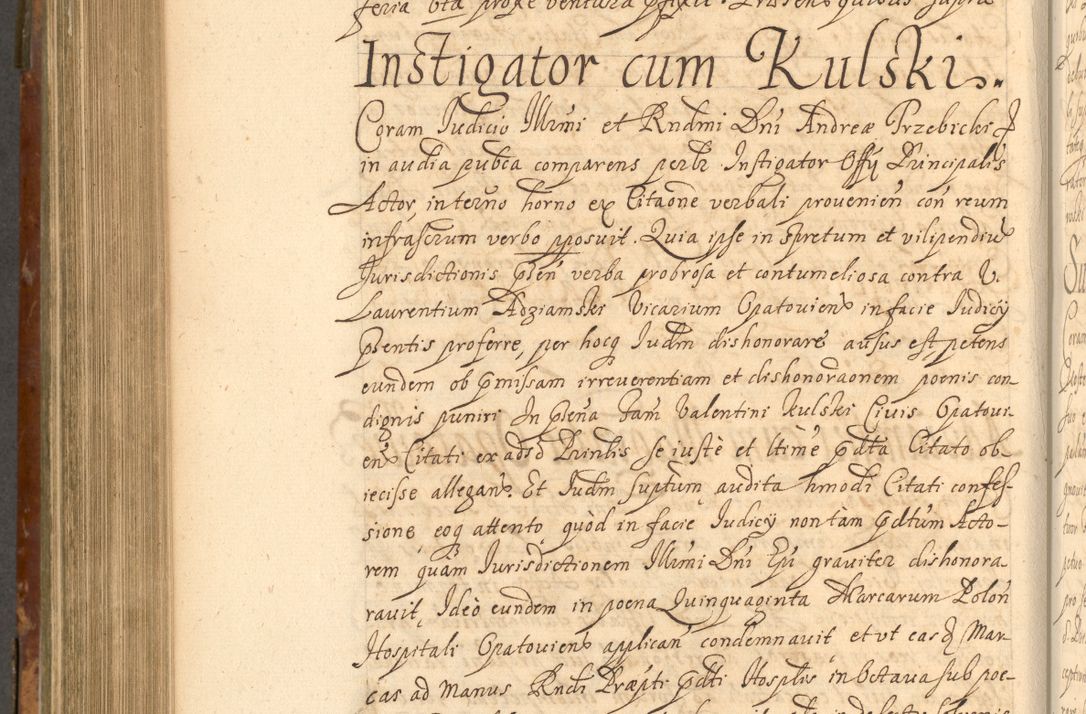 feria 6ta proxe ventura
Instigator cum Kulski.
Coram Iudicio Illrmi et Rndmi Dni Andreæ Trzebicki E
in audia pubca comparens perlr Instigator Offy Principalis
Actor in terno horno ex Citaone verbali provenien con reum
infrascrum verbo pposuit. Quia ipse in spretum et vilipendiu
Jurisdictionis psen verba probrosa et contumeliosa contra V.
Laurentium Adziamski Vicarium Opatovien in facie Iudicÿ
psentis proferre, per hocq Iudm dishonorare ausus est, petens
eundem ob pmissam irreverentiam et dishonoraonem poenis con-
dignis puniri. In psena tam Valentini Kulski Civis Opatovi-
en Citati ex adso Prinlis se iustè et ltime pdta Citato ob-
iecisse allegan. Et Iudm suptum, audita hmodi Citati confes-
sione eoq attento, quòd in facie Iudicÿ non tam pdtum Acto-
rem quam Iurisdictionem Illrmi Dni Epi graviter dishonora
ravit, Ideò eundem in poena Quinquaginta Marcarum Polon
Hospitali Opatovien applican condemnavit et ut eas Mar-
cas ad manus Rndi Præpti pdti Hosplis in octava sub poe-